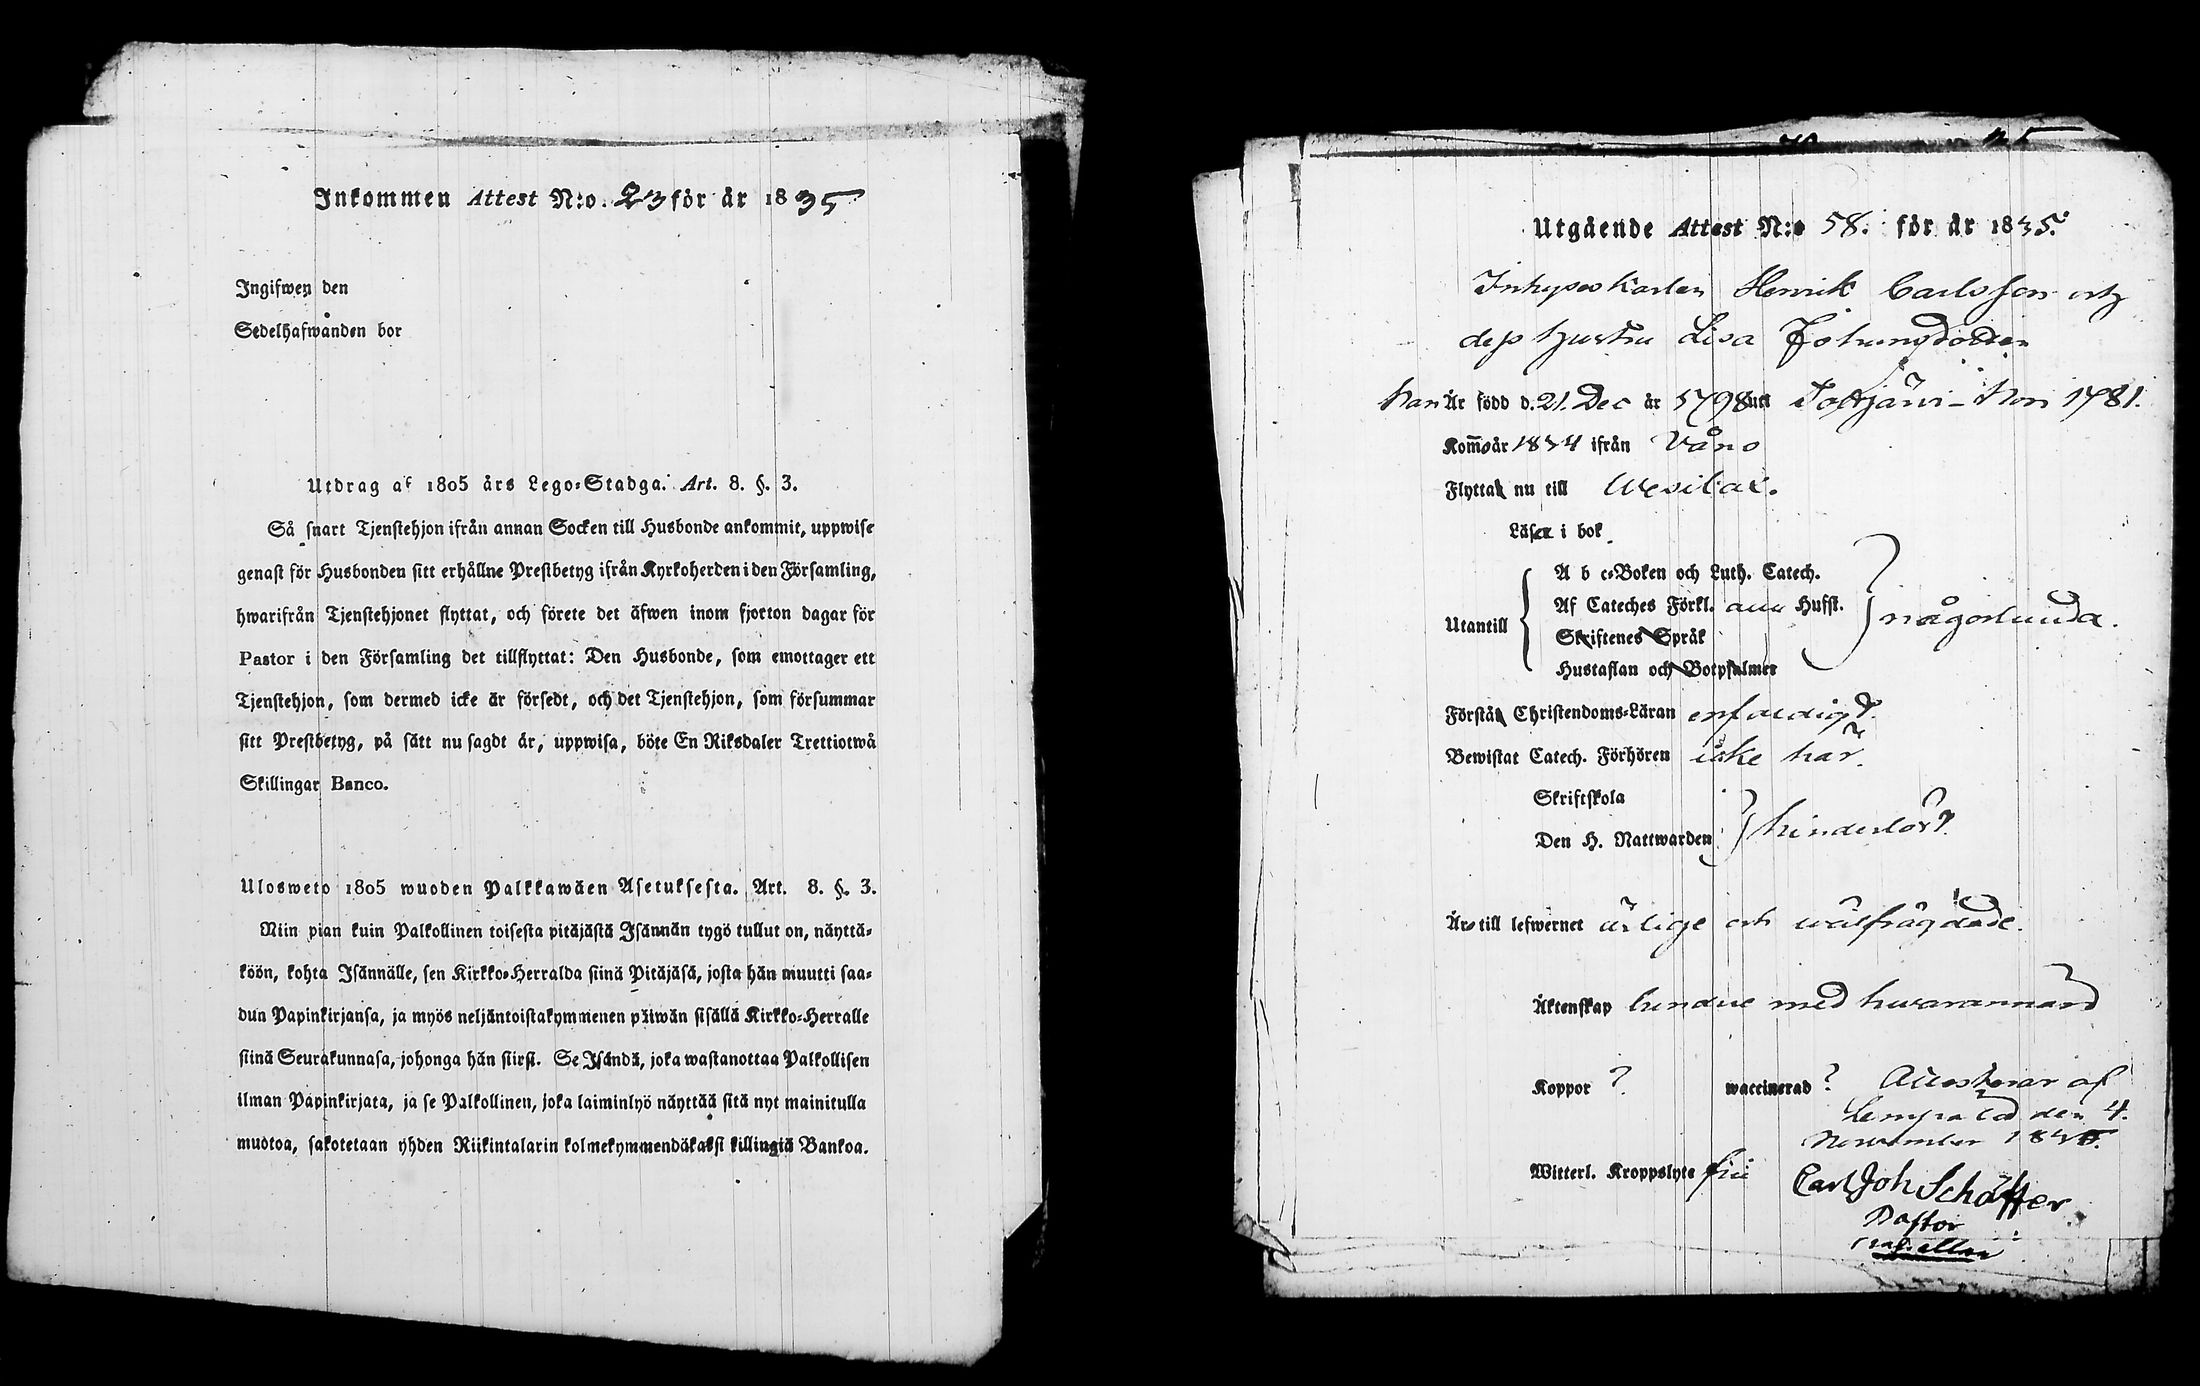 Inkommen Attest N:o. 23 för år 1835
Ingifwen den
Sedelhafwanden bor
Utdrag af 1805 års Lego-Stadga. Art. 8. §. 3.
Så snart Tjenstehjon ifrån annan Socken till Husbonde ankommit, uppwise
genast för Husbonden sitt erhållne Prestbetyg ifrån Kyrkoherden i den Församling,
hwarifrån Tjenstehjonet flyttat, och förete det äfwen inom fjorton dagar för
Pastor i den Församling det tillflyttat: Den Husbonde, som emottager ett
Tjenstehjon, som dermed icke är försedt, och det Tjenstehjon, som försummar
sitt Prestbetyg, på sätt nu sagdt är, uppwisa, böte En Riksdaler Trettiotwå
Skillingar Banco.
Ulosweto 1805 wuoden Palkkawäen Asetuksesta. Art. 8. §. 3.
Niin pian kuin Palkollinen toisesta pitäjästä Isännän tygö tullut on, näyttä-
köön, kohta Isännälle, sen Kirkko-Herralda siinä Pitäjäsä, josta hän muutti saa-
dun Papinkirjansa, ja myös neljäntoistakymmenen päiwän sisällä Kirkko-Herralle
siinä Seurakunnasa, johonga hän siirsi. Se Isändä, joka wastanottaa Palkollisen
ilman Papinkirjata, ja se Palkollinen, joka laiminlyö näyttää sitä nyt mainitulla
muotoa, sakotetaan yhden Riikintalarin kolmekymmendäkaksi killingiä Bankoa.
Utgående Attest N:o 58. för år 1835.
Inhyses Karlen Henrik Carlsson och
dess hustru Lisa Johansdotter
han Är född d. 21. Dec år 1798 uti - hon 1781.
Kom̄o år 1834 ifrån Våno
Flytta nu till Wesilax.
Läsa i bok
Utantill
A b c-Boken och Luth. Catech.
Af Cateches Förkl. Husst.
Skriftenes Språk
Hustaflan och Botpsalmer
någorlunda.
Förstå Christendoms-Läran enfaldigt.
Bewistat Catech. Förhören icke här.
Skriftskola
Den H. Nattwarden
hinderlöst.
Äro till lefwernet ärlige och wälfrägdade.
Äktenskap bundne med hwarannan
Koppor ? waccinerad ? Attesterar af
Lempälä den 4.
November 1835.
Witterl. Kroppslyte fria
Carl Joh Schäffer
Pastor